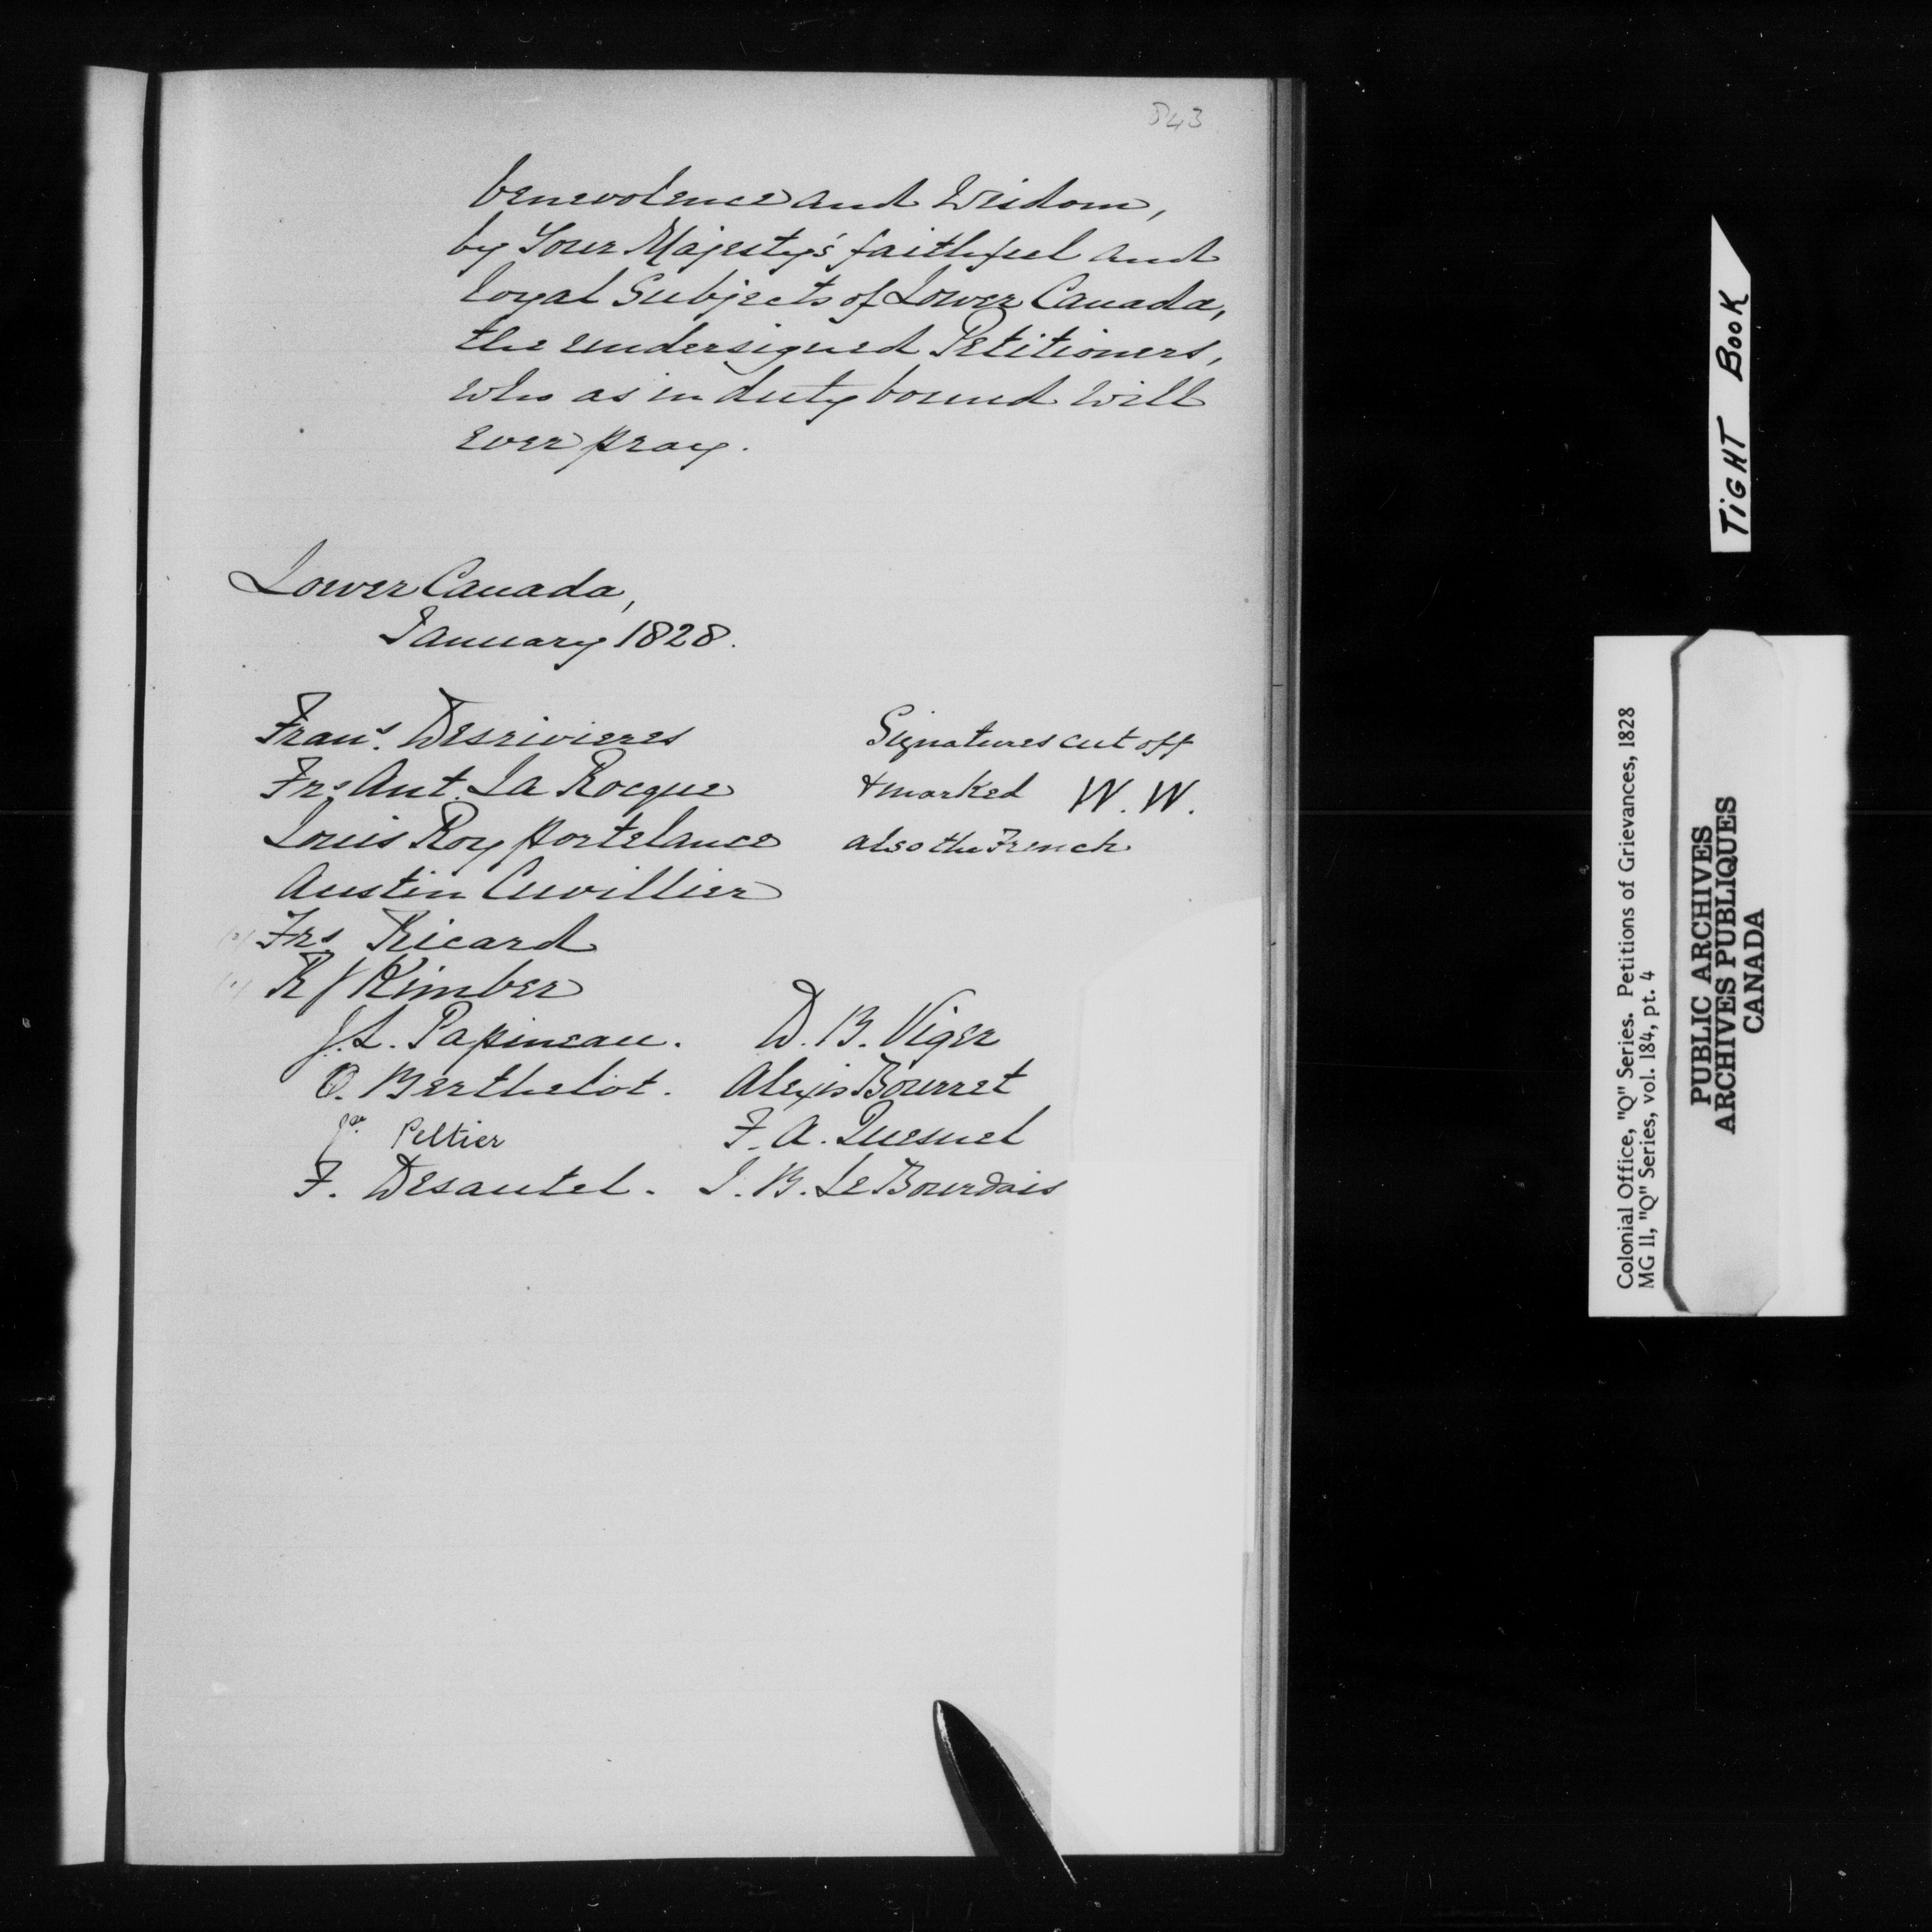 843
benevolence and Wisdom,
by Your Majesty's faithful and
loyal Subjects of Lower Canada,
the undersigned Petitioners,
who as in duty bound will
ever pray.
Lower Canada,
January 1828.
Frans. Desrivieres
Frs Ant. La Rocque
Louis Roy Portelance
Austin Cuvillier
Frs Ricard
R J Kimber
Signatures cut off
& marked W. W.
also the French
J. L. Papineau. D. B. Viger
O. Berthelot. Alexis Bourret
Peltier F. A. Quesnel
F. Desautel. J. B. Le Bourdais
TIGHT BOOK
Colonial Office, "Q" Series. Petitions of Grievances, 1828
MG 11, "Q" Series, vol. 184, pt. 4
PUBLIC ARCHIVES
ARCHIVES PUBLIQUES
CANADA